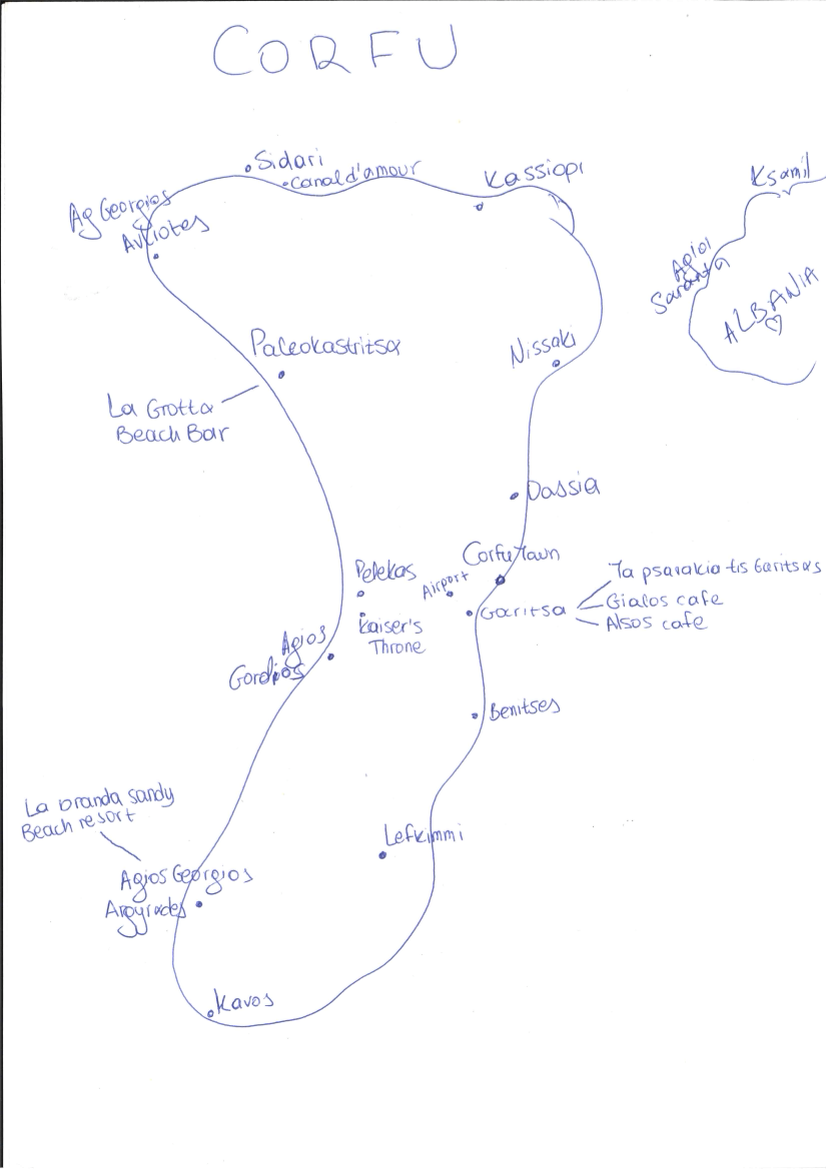 CORFU
Sidari
Canal d'amour
Kassiopi
Ksamil
Ag Georgios
Avliotes
Agioi
Saranta
ALBANIA
Paleokastritsa
Nissaki
La Grotta
Beach Bar
Dassia
Corfu Town
Pelekas
Airport
Ta psarakia tis Garitsas
Garitsa
Gialos cafe
Alsos cafe
Kaiser's
Throne
Agios
Gordios
Benitses
La branda sandy
Beach resort
Lefkimmi
Agios Georgios
Argyrades
Kavos